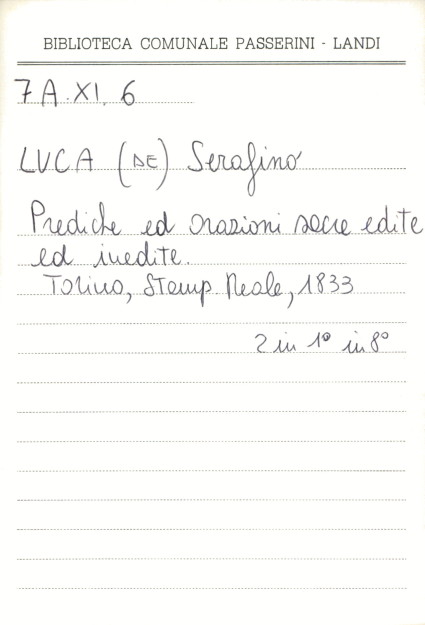 BIBLIOTECA COMUNALE PASSERINI - LANDI
7 A. XI. 6
LUCA (DE) Serafino
Prediche ed orazioni sacre edite
ed inedite.
Torino, Stamp. Reale, 1833
2 in 1° in 8°